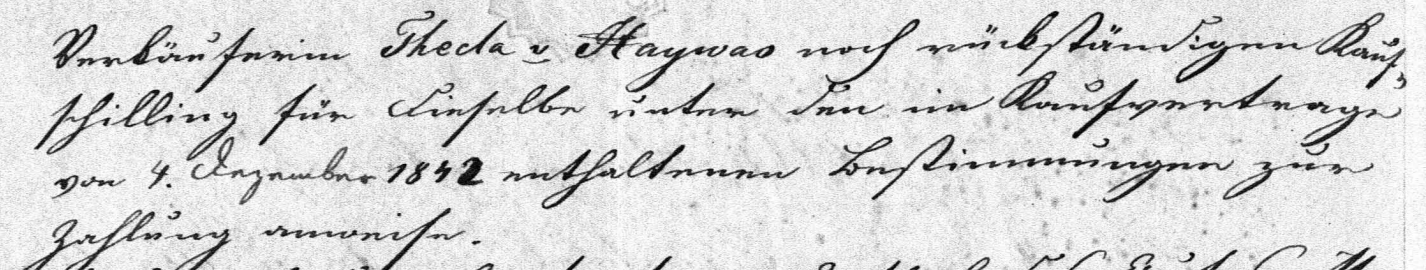 Verkäuferin Thecla v Haywas noch rückständigen Kauf-
schilling für dieselbe unter den im Kaufvertrage
von 4. Dezember 1842 enthaltenen Bestimmungen zur
Zahlung anweise.